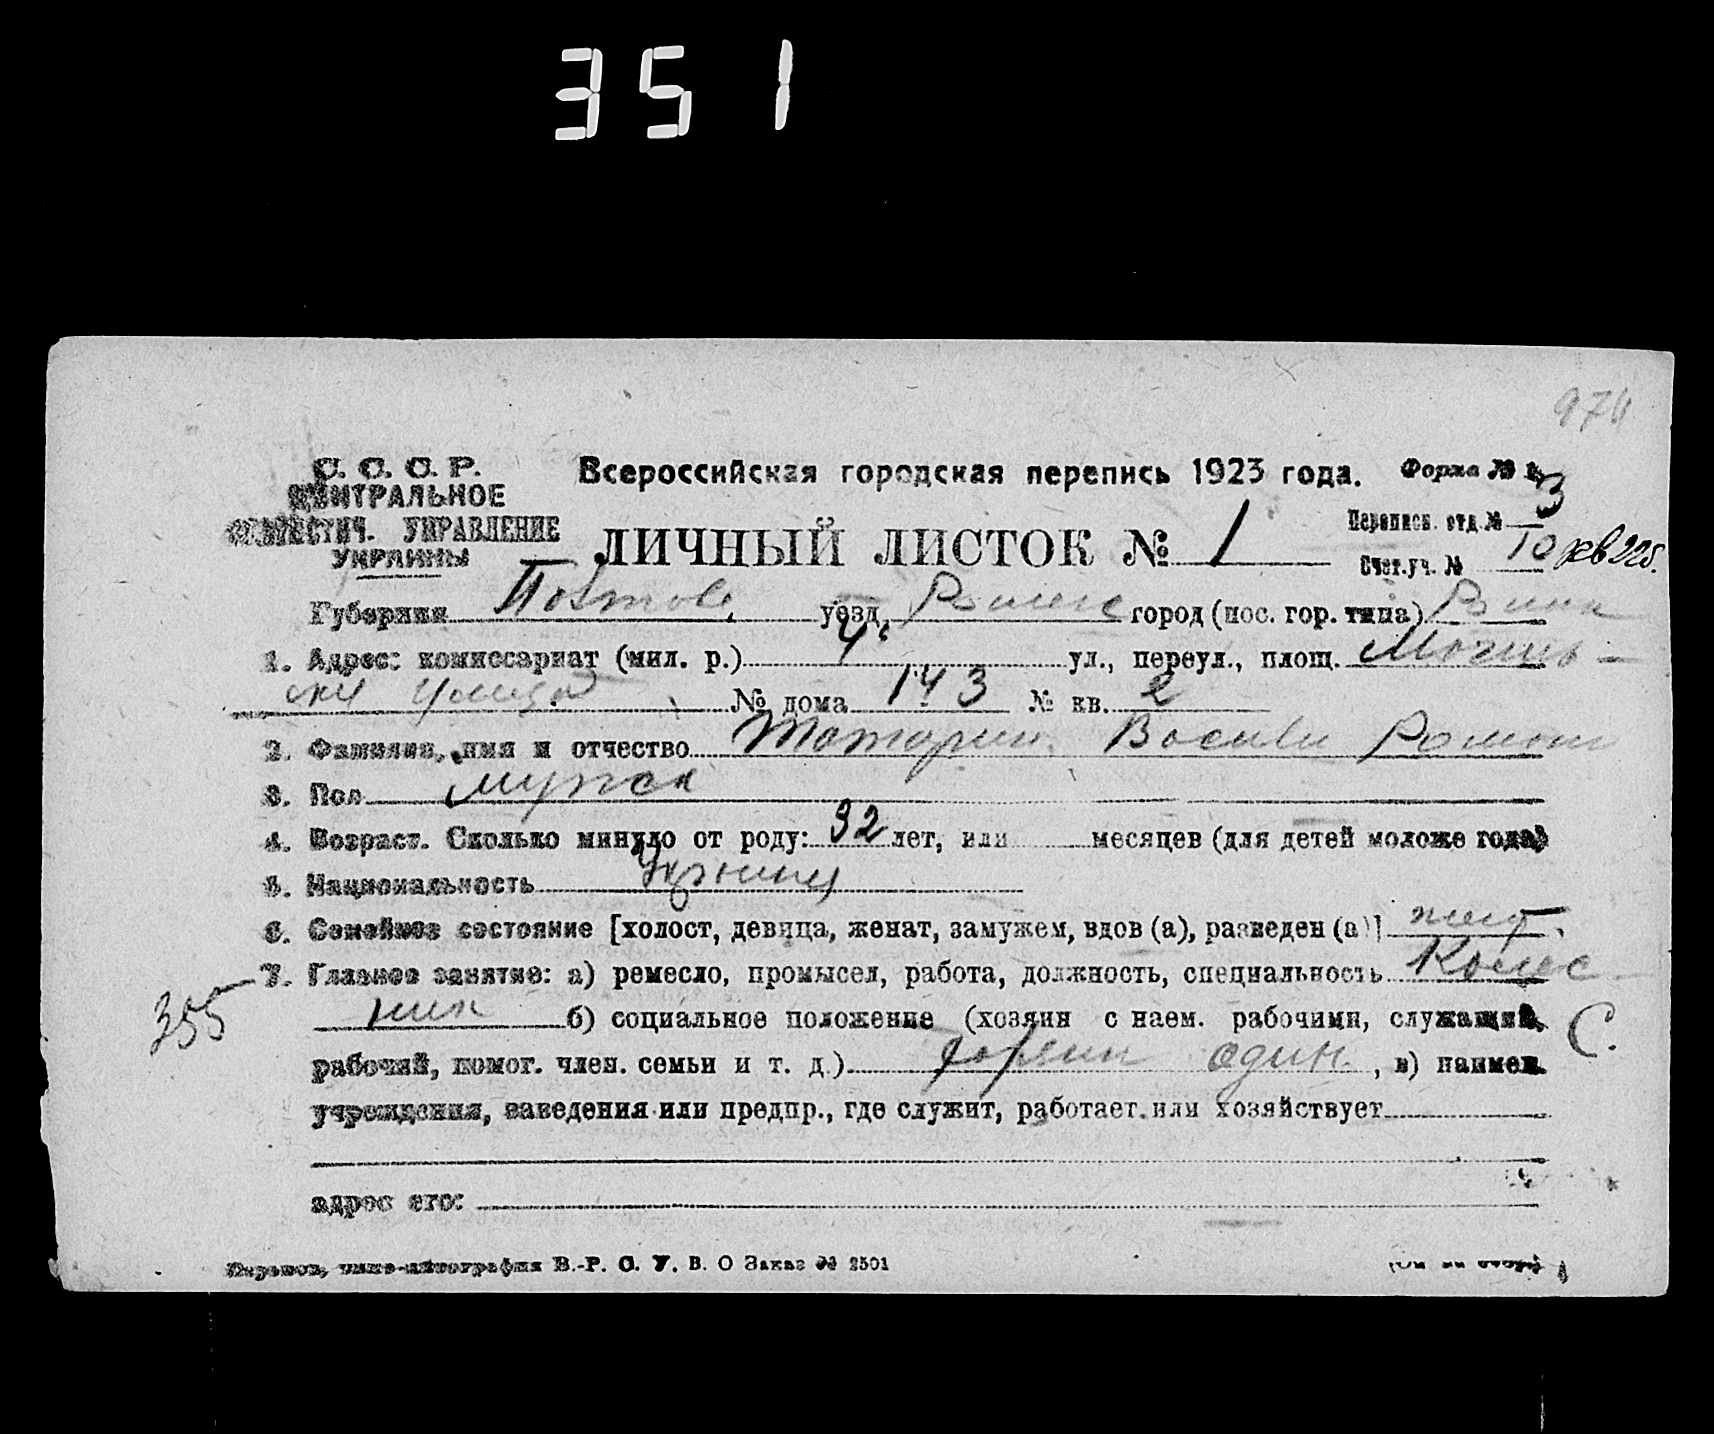 351
974
С. С. С. Р.
ЦЕНТРАЛЬНОЕ
СТАТИСТИЧ. УПРАВЛЕНИЕ
УКРАИНЫ
Всероссийская городская перепись 1923 года.
Форма №
ЛИЧНЫЙ ЛИСТОК № 1
Перепис. отд. № 3
Счет. уч. № 10 кв 22б.
Губерния Полтов. уезд Ромен город (пос. гор. типа)
1. Адрес: комиссариат (мил. р.) 4 ул., переул., площ.
№ дома 143 № кв. 2
2. Фамилия, имя и отчество Татарин Васили Роман
3. Пол мужск
4. Возраст. Сколько минуло от роду: 32 лет, или месяцев (для детей моложе года)
5. Национальность Украинец
6. Семейное состояние [холост, девица, женат, замужем, вдов (а), разведен (а)] жен.
7. Главное занятие: а) ремесло, промысел, работа, должность, специальность Колес-
355 ник б) социальное положение (хозяин с наем. рабочими, служащий, С.
рабочий, помог. член. семьи и т. д.) хозяин один, в) наимен.
учреждения, заведения или предпр., где служит, работает или хозяйствует
адрес его:
В.-Р. С. У. В. О Заказ № 2501